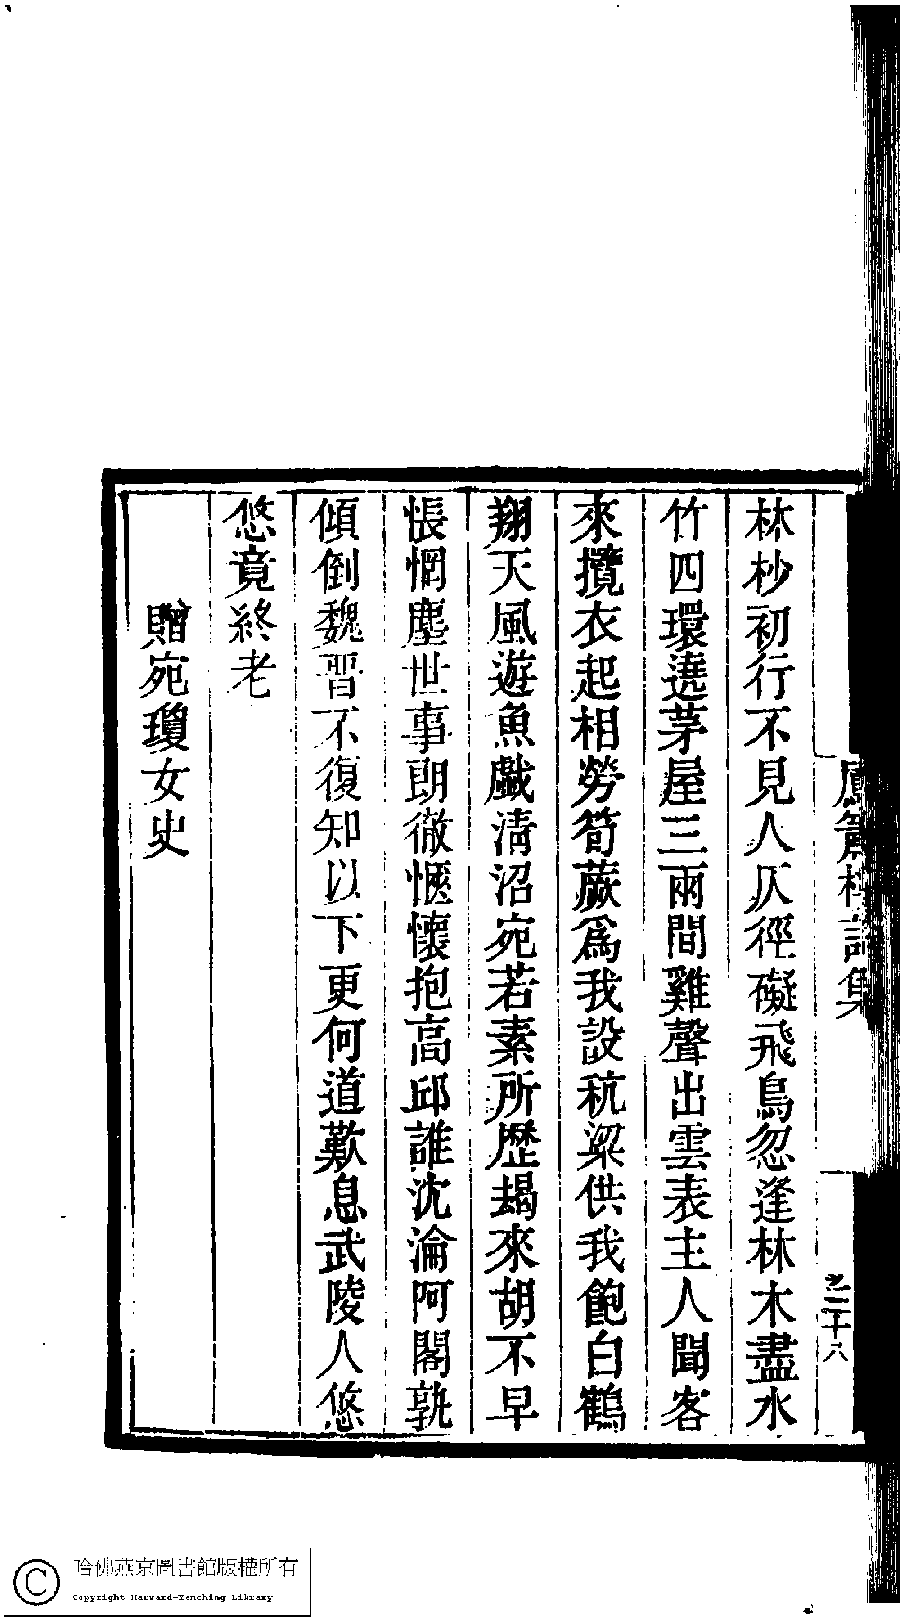 林杪初行不見人仄徑礙飛鳥忽逢林木盡水
竹四環遶茅屋三兩間雞聲出雲表主人聞客
來攬衣起相勞筍蕨爲我設秔粱供我飽白鶴
翔天風遊魚戲清沼宛若素所歴朅來胡不早
悵惘塵世事朗徹愜懷抱高邱誰沈淪阿閣孰
傾倒魏晉不復知以下更何道歎息武陵人悠
悠竟終老
贈宛瓊女史
詩集
之二十八
哈佛燕京圖書館版權所有
Copyright Harvard-Yenching Library